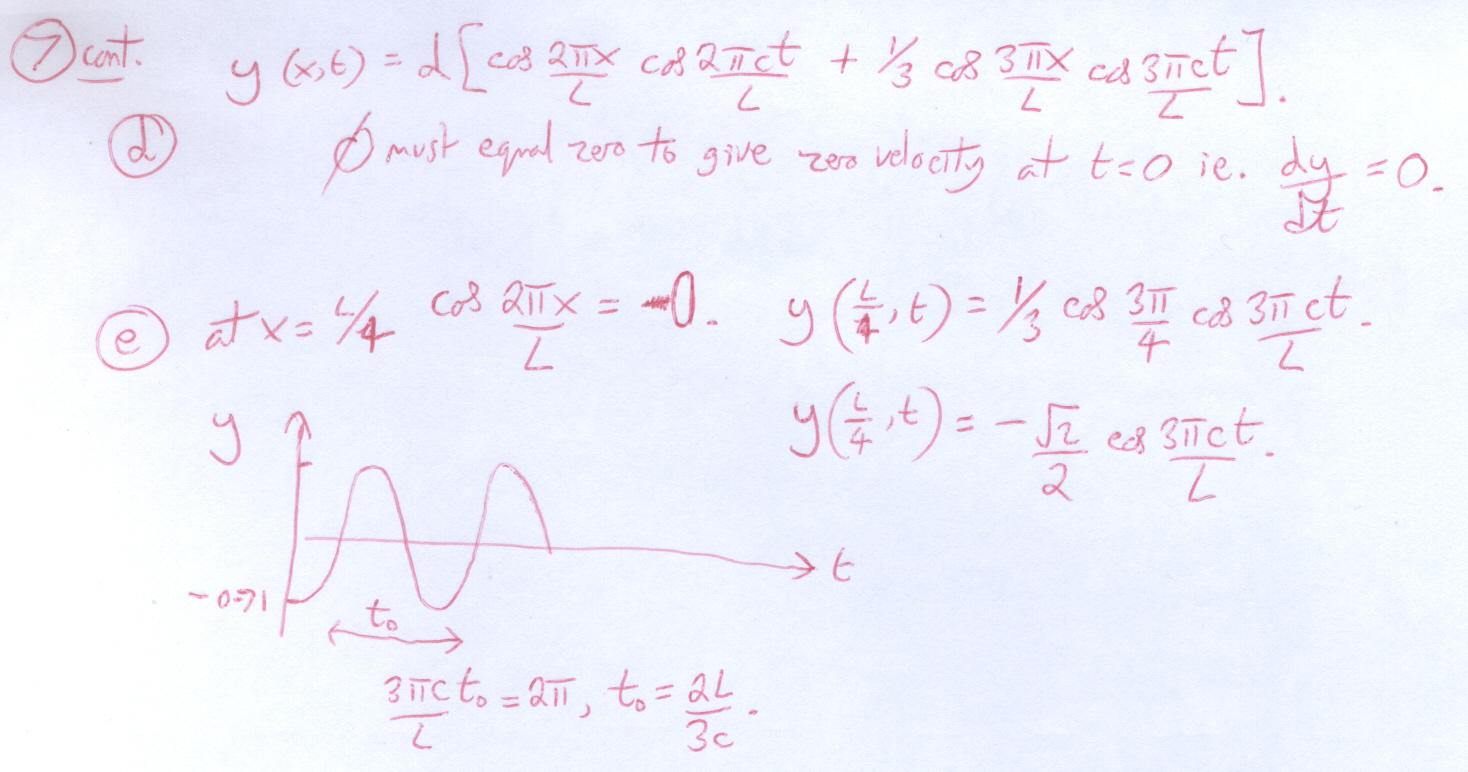 7 cont. y (x,t) = d [ cos 2πx/L cos 2πct/L + 1/3 cos 3πx/L cos 3πct/L ].
d φ must equal zero to give zero velocity at t=0 ie. dy/dt = 0.
e at x = L/4 cos 2πx/L = 0. y (L/4, t) = 1/3 cos 3π/4 cos 3πct/L.
y (L/4, t) = - √2/2 cos 3πct/L.
y
t
- 0.71
t₀
3πc/L t₀ = 2π, t₀ = 2L/3c.